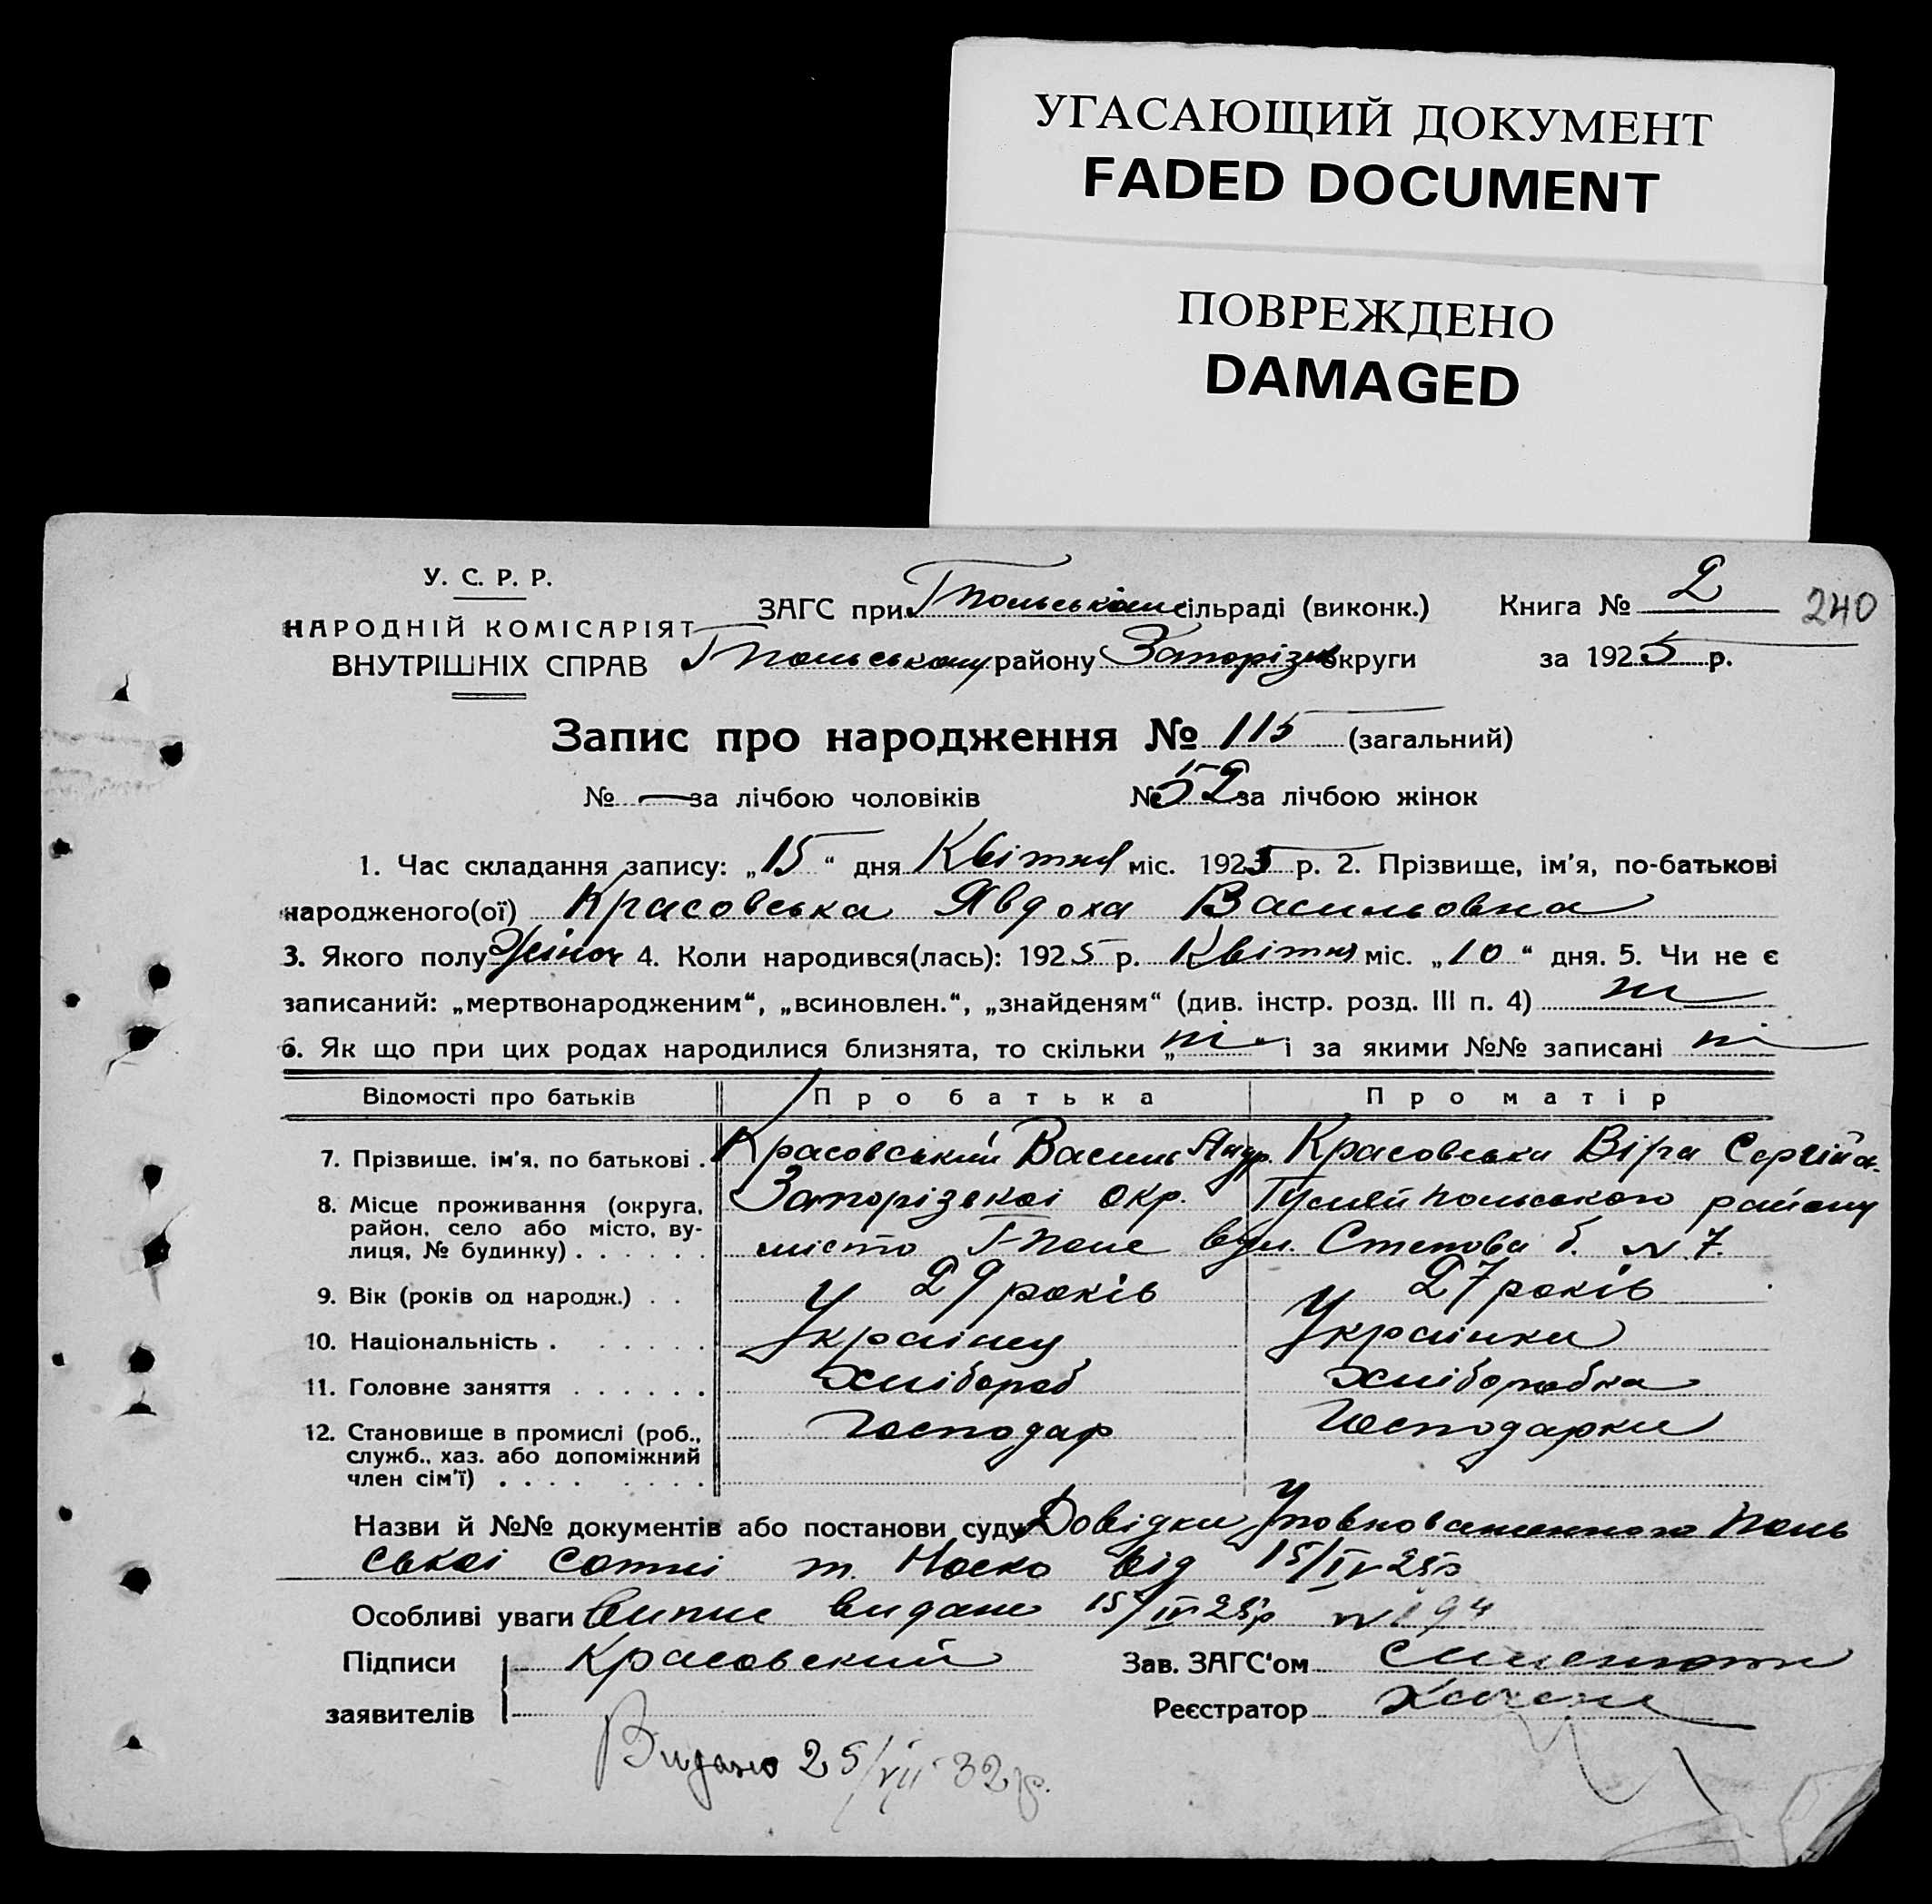 УГАСАЮЩИЙ ДОКУМЕНТ
FADED DOCUMENT
ПОВРЕЖДЕНО
DAMAGED
У. С. Р. Р.
НАРОДНІЙ КОМІСАРІЯТ
ВНУТРІШНІХ СПРАВ
ЗАГС при Гпольськом сільраді (виконк.)
Гпольському району Запорізьк округи
Книга № 2
240
за 1925 р.
Запис про народження № 115 (загальний)
№ — за лічбою чоловіків № 52 за лічбою жінок
1. Час складання запису: „15“ дня Квітня міс. 1925 р. 2. Прізвище, ім'я, по-батькові
народженого(ої) Красовська Явдоха Васильовна
3. Якого полу Жіноч 4. Коли народився(лась): 1925 р. Квітня міс. „10“ дня. 5. Чи не є
записаний: „мертвонародженим“, „всиновлен.“, „знайденям“ (див. інстр. розд. III п. 4) ні
6. Як що при цих родах народилися близнята, то скільки „ні“ і за якими №№ записані ні
Відомості про батьків Про батька Про матір
7. Прізвище, ім'я, по батькові . Красовський Василь Андр. Красовська Віра Сергійв.
8. Місце проживання (округа, район, село або місто, вулиця, № будинку) . . . . . . Запорізскоі окр. Гуляйпольського району
місто Гполе вул. Степова б. № 7.
9. Вік (років од народж.) . . 29 років 27 років
10. Національність . . . . . . Украінец Украінка
11. Головне заняття . . . . . . Хлібороб Хліборобка
12. Становище в промислі (роб., служб., хаз. або допоміжний член сім'ї) . . . . . . . . Господар Господарка
Назви й №№ документів або постанови суду Довідка Уповноваженного Поль
ськоі сотні т. Носко від 15/IV 25р
Особливі уваги Випис видано 15/IV 25р № 194
Підписи заявителів Красовский
Зав. ЗАГС'ом
Реєстратор
Видано 25/VII 32 р.